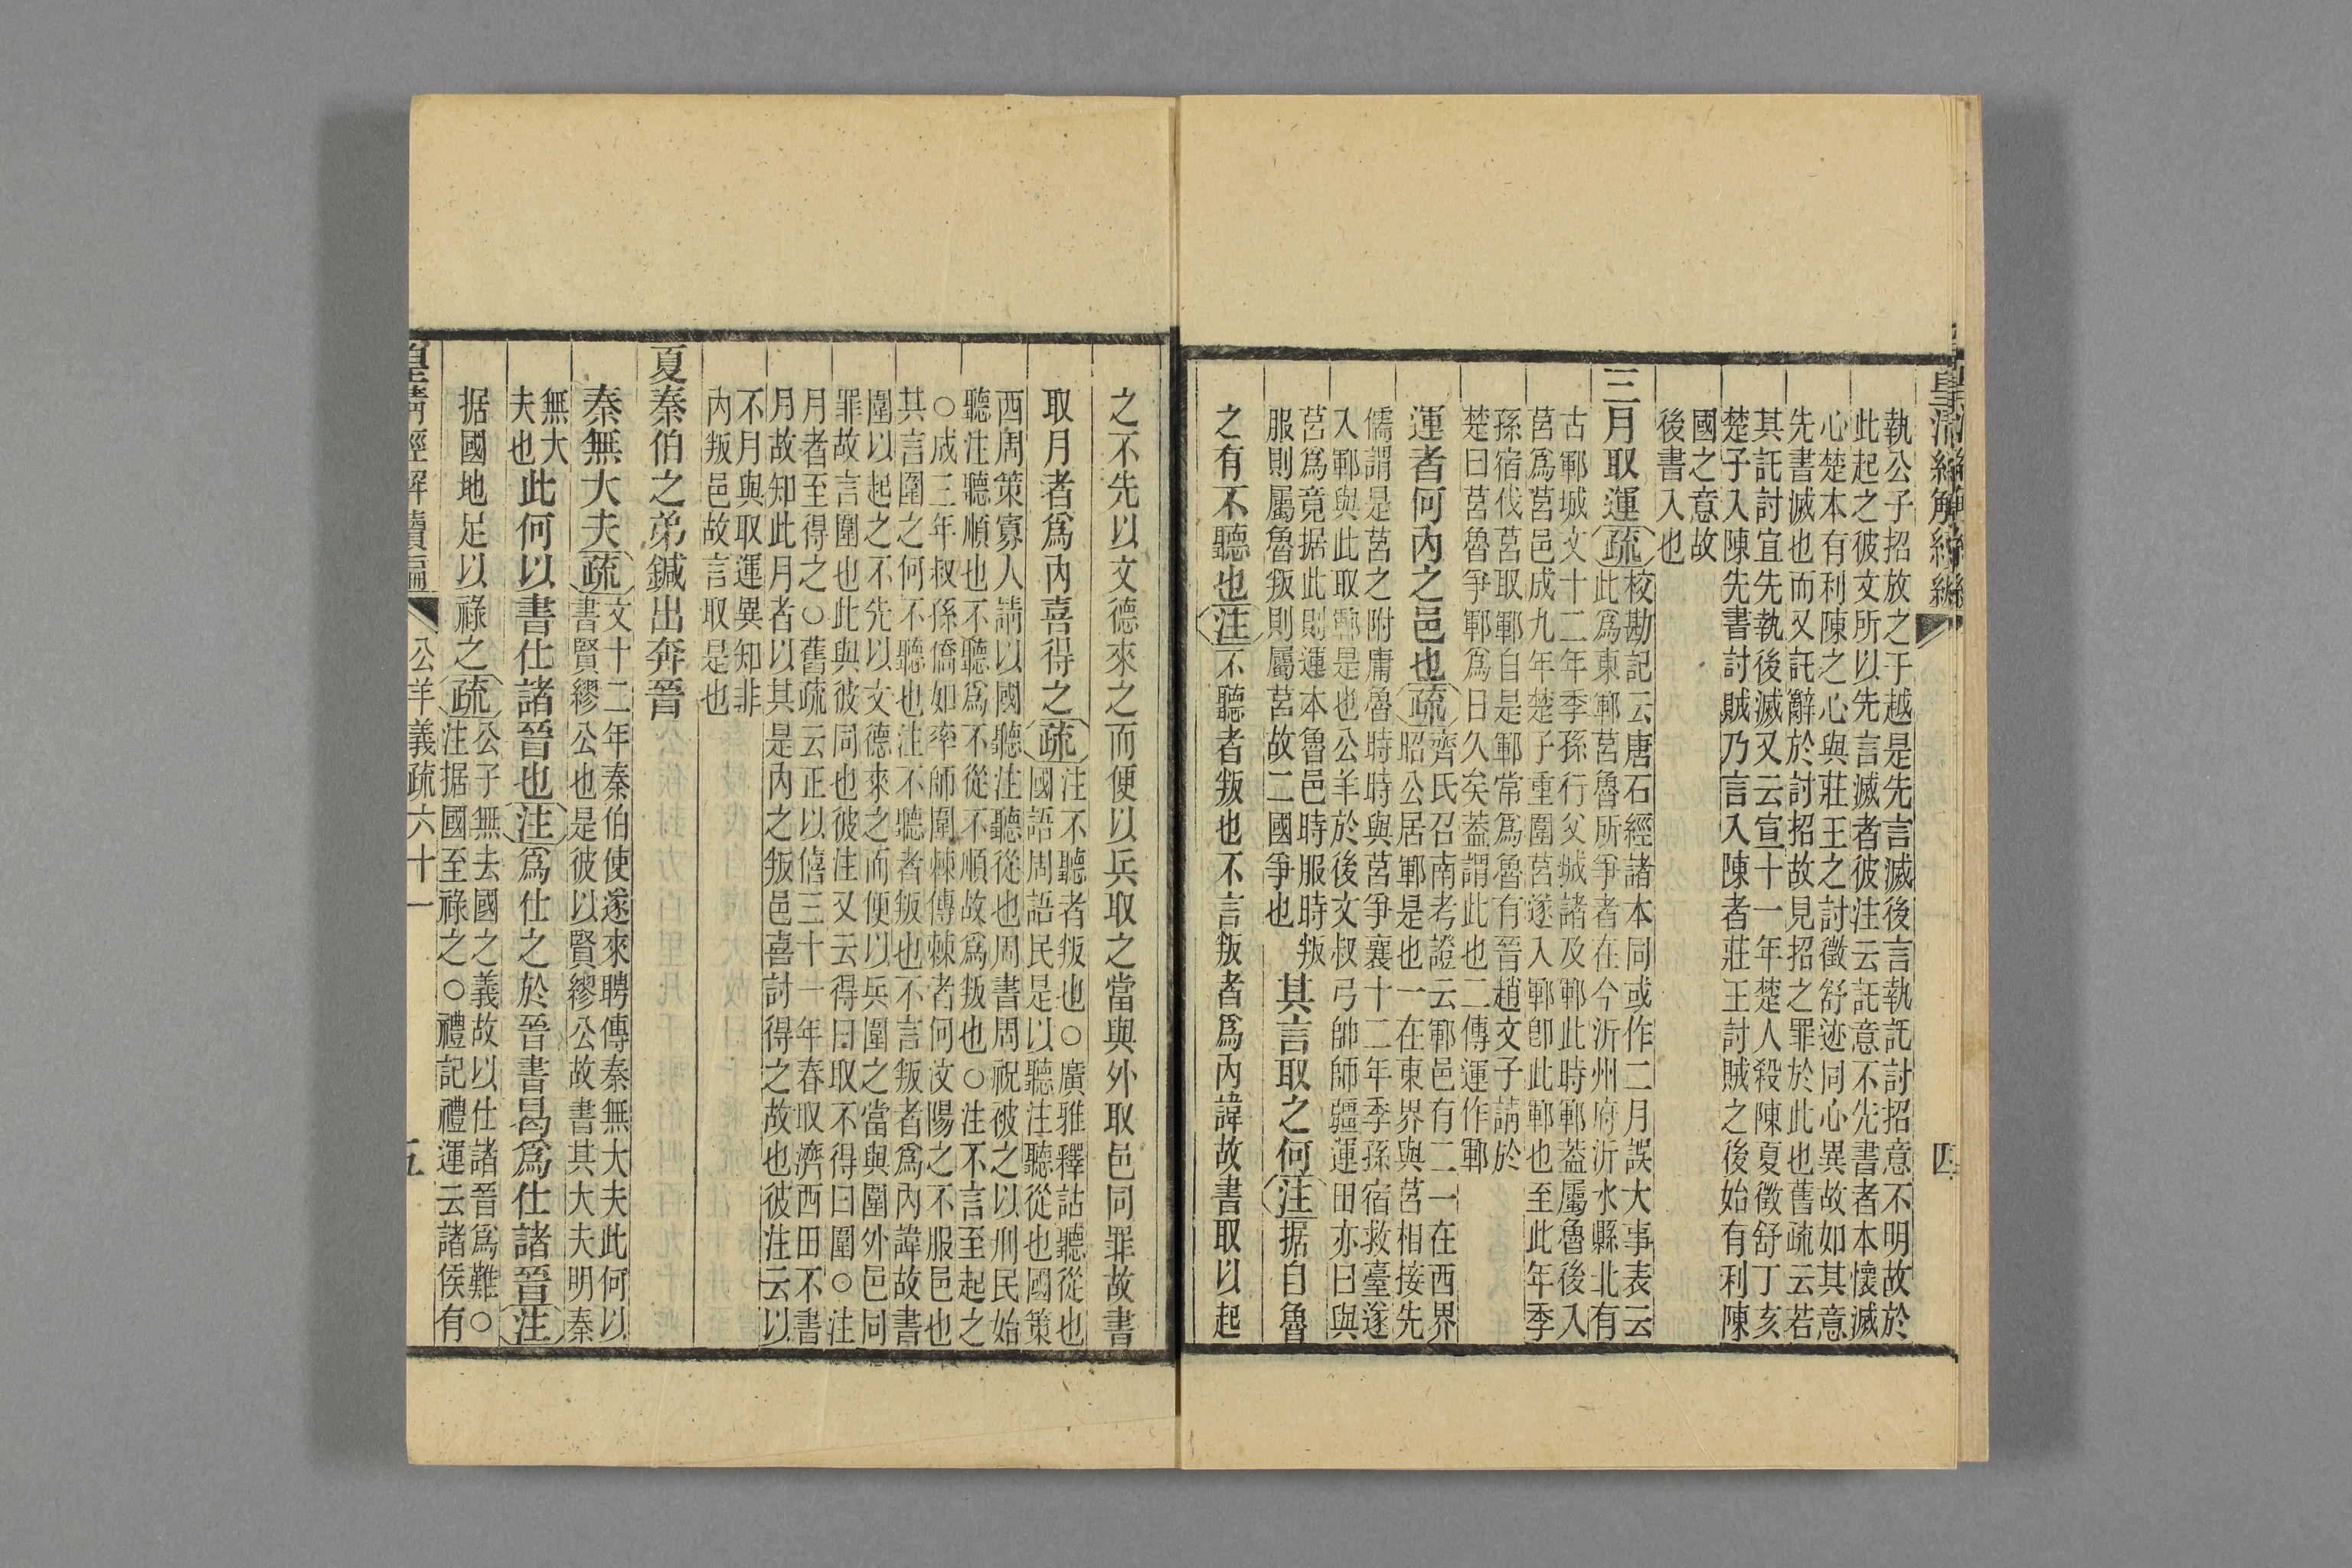 執公子招放之于越是先言滅後言執託討招意不明故於
此起之彼文所以先言滅者彼注云託意不先書者本懷滅
心楚本有利陳之心與莊王之討徵舒迹同心異故如其意
先書滅也而又託辭於討招故見招之罪於此也舊疏云若
其託討宜先執後滅又云宣十一年楚人殺陳夏徵舒丁亥
楚子入陳先書討賊乃言入陳者莊王討賊之後始有利陳
國之意故
後書入也
三月取運疏校勘記云唐石經諸本同或作二月誤大事表云
此爲東鄆莒魯所爭者在今沂州府沂水縣北有
古鄆城文十二年季孫行父城諸及鄆此時鄆葢屬魯後入
莒爲莒邑成九年楚子重圍莒遂入鄆卽此鄆也至此年季
孫宿伐莒取鄆自是鄆常爲魯有晉趙文子請於
楚曰莒魯爭鄆爲日久矣葢謂此也二傳運作鄆
運者何內之邑也疏齊氏召南考證云鄆邑有二一在西界
昭公居鄆是也一在東界與莒相接先
儒謂是莒之附庸魯時時與莒爭襄十二年季孫宿救臺遂
入鄆與此取鄆是也公羊於後文叔弓帥師疆運田亦曰與
莒爲竟据此則運本魯邑時服時叛
服則屬魯叛則屬莒故二國爭也
其言取之何注据自魯
之有不聽也注不聽者叛也不言叛者爲內諱故書取以起
之不先以文德來之而便以兵取之當與外取邑同罪故書
取月者爲內喜得之疏注不聽者叛也○廣雅釋詁聽從也
國語周語民是以聽注聽從也國策
西周策寡人請以國聽注聽從也周書周祝彼之以刑民始
聽注聽順也不聽爲不從不順故爲叛也○注不言至起之
○成三年叔孫僑如率師圍棘傳棘者何汶陽之不服邑也
其言圍之何不聽也注不聽者叛也不言叛者爲內諱故書
圍以起之不先以文德來之而便以兵圍之當與圍外邑同
罪故言圍也此與彼同也彼注又云得曰取不得曰圍○注
月者至得之○舊疏云正以僖三十一年春取濟西田不書
月故知此月者以其是內之叛邑喜討得之故也彼注云以
不月與取運異知非
內叛邑故言取是也
夏秦伯之弟鍼出奔晉
秦無大夫疏文十二年秦伯使遂來聘傳秦無大夫此何以
書賢繆公也是彼以賢繆公故書其大夫明秦
無大
夫也
此何以書仕諸晉也注爲仕之於晉書曷爲仕諸晉注
据國地足以祿之疏公子無去國之義故以仕諸晉爲難○
注据國至祿之○禮記禮運云諸侯有
公羊義疏六十一